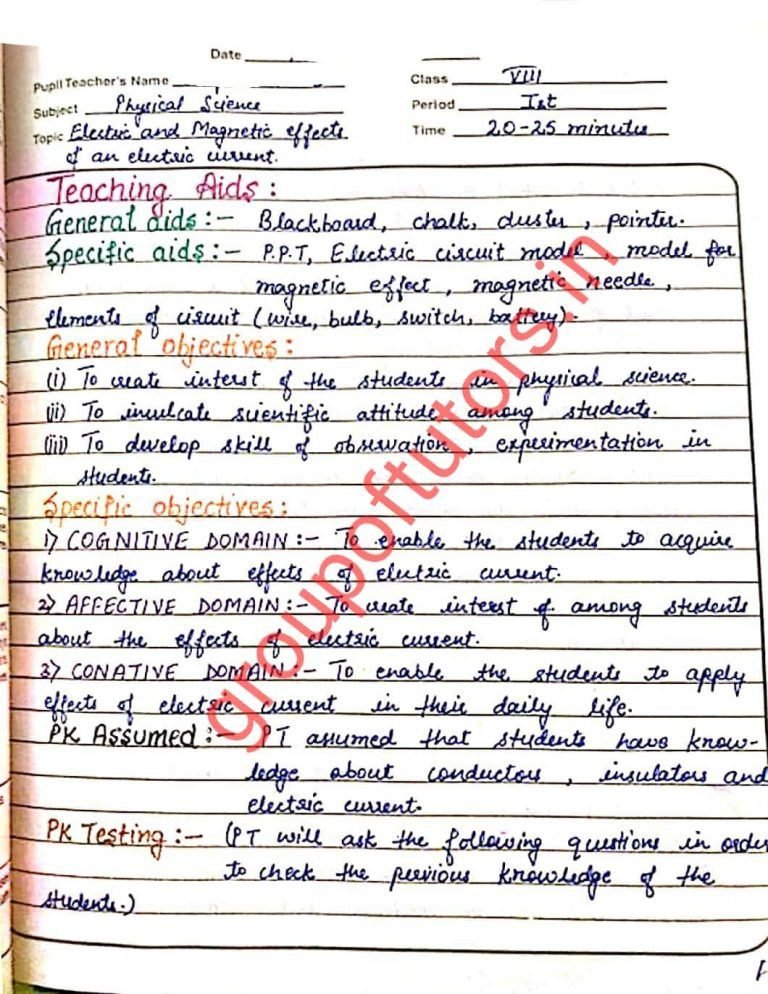 Date
Pupil Teacher's Name
Class VIII
Subject Physical Science
Period Ist
Topic Electric and Magnetic effects
Time 20-25 minutes
of an electric current.
Teaching Aids :
General aids :- Blackboard, chalk, duster, pointer.
Specific aids :- P.P.T, Electric circuit model, model for
magnetic effect, magnetic needle,
elements of circuit (wire, bulb, switch, battery).
General objectives :
(i) To create interst of the students in physical science.
(ii) To inculcate scientific attitude among students.
(iii) To develop skill of observation, experimentation in
students.
Specific objectives :
1) COGNITIVE DOMAIN :- To enable the students to acquire
knowledge about effects of electric current.
2) AFFECTIVE DOMAIN :- To create interst of among students
about the effects of electric current.
3) CONATIVE DOMAIN :- To enable the students to apply
effects of electric current in their daily life.
PK Assumed :- PT assumed that students have know-
ledge about conductors, insulators and
electric current.
PK Testing :- (PT will ask the following questions in order
to check the previous knowledge of the
students.)
groupoftutors.in